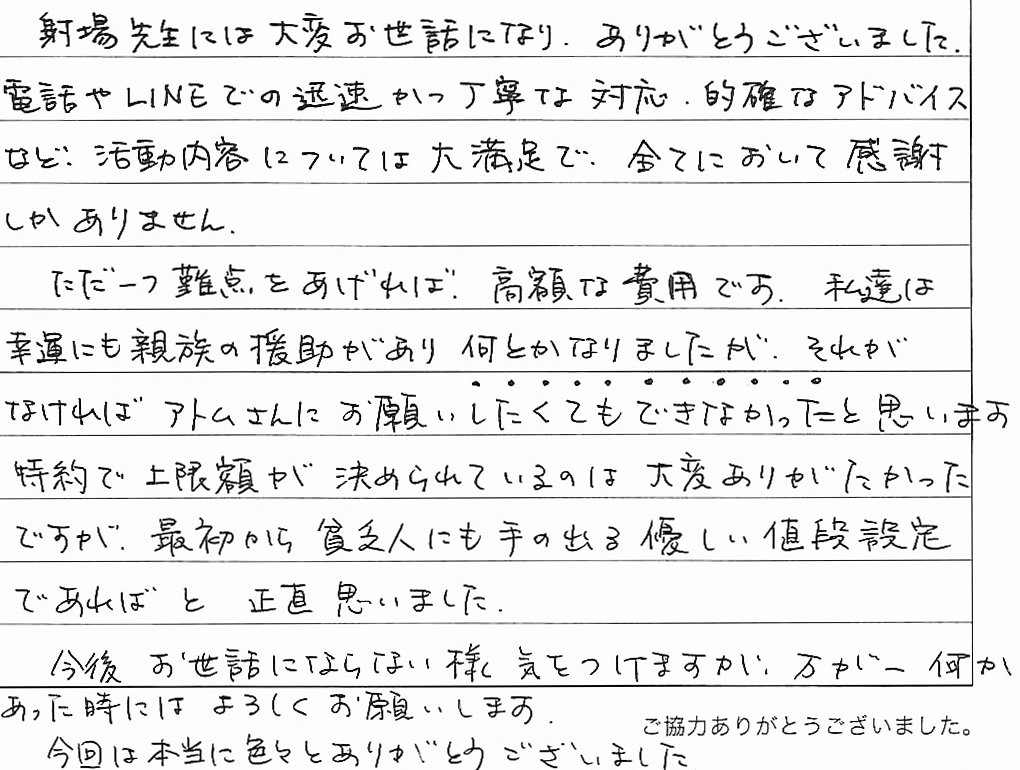 射場先生には大変お世話になり、ありがとうございました。
電話やLINEでの迅速かつ丁寧な対応、的確なアドバイス
など、活動内容については大満足で、全てにおいて感謝
しかありません。
ただ一つ難点をあげれば、高額な費用です。私達は
幸運にも親族の援助があり何とかなりましたが、それが
なければアトムさんにお願いしたくてもできなかったと思います
特約で上限額が決められているのは大変ありがたかった
ですが、最初から貧乏人にも手の出る優しい値段設定
であればと正直思いました。
今後お世話にならない様気をつけますが、万が一何か
あった時にはよろしくお願いします。
ご協力ありがとうございました。
今回は本当に色々とありがとうございました